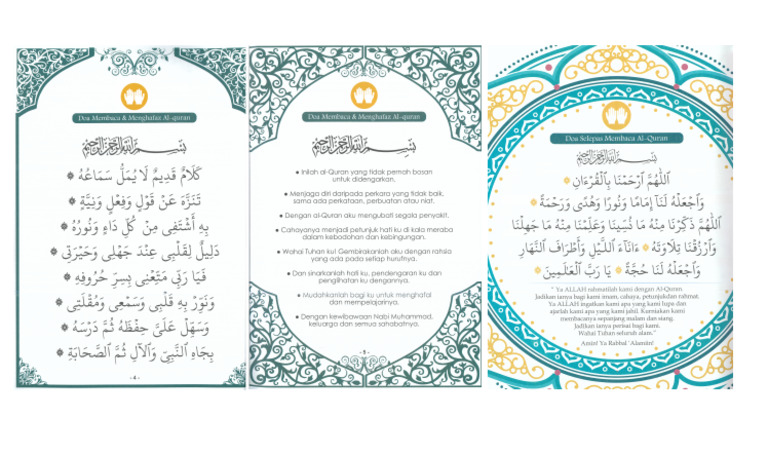 Doa Membaca & Menghafaz Al-quran
بِسْمِ اللَّهِ الرَّحْمَٰنِ الرَّحِيمِ
كَلَامٌ قَدِيمٌ لَا يُمَلُّ سَمَاعُهُ
تَنَزَّهَ عَنْ قَوْلٍ وَفِعْلٍ وَنِيَّةٍ
بِهِ أَشْتَفِي مِنْ كُلِّ دَاءٍ وَنُورُهُ
دَلِيلٌ لِقَلْبِي عِنْدَ جَهْلِي وَحَيْرَتِي
فَيَا رَبِّ مَتِّعْنِي بِسِرِّ حُرُوفِهِ
وَنَوِّرْ بِهِ قَلْبِي وَسَمْعِي وَمُقْلَتِي
وَسَهِّلْ عَلَيَّ حِفْظَهُ ثُمَّ دَرْسَهُ
بِجَاهِ النَّبِيِّ وَالْآلِ ثُمَّ الصَّحَابَةِ
- 4 -
Doa Membaca & Menghafaz Al-quran
بِسْمِ اللَّهِ الرَّحْمَٰنِ الرَّحِيمِ
● Inilah al-Quran yang tidak pernah bosan
untuk didengarkan.
● Menjaga diri daripada perkara yang tidak baik,
sama ada perkataan, perbuatan atau niat.
● Dengan al-Quran aku mengubati segala penyakit.
● Cahayanya menjadi petunjuk hati ku di kala meraba
dalam kebodohan dan kebingungan.
● Wahai Tuhan ku! Gembirakanlah aku dengan rahsia
yang ada pada setiap hurufnya.
● Dan sinarkanlah hati ku, pendengaran ku dan
penglihatan ku dengannya.
● Mudahkanlah bagi ku untuk menghafal
dan mempelajarinya.
● Dengan kewibawaan Nabi Muhammad,
keluarga dan semua sahabatnya.
- 5 -
Doa Selepas Membaca Al-Quran
بِسْمِ اللَّهِ الرَّحْمَٰنِ الرَّحِيمِ
اَللَّهُمَّ ٱرْحَمْنَا بِٱلْقُرْءَانِ
وَٱجْعَلْهُ لَنَا إِمَامًا وَنُورًا وَهُدًى وَرَحْمَةً
اَللَّهُمَّ ذَكِّرْنَا مِنْهُ مَا نُسِّينَا وَعَلِّمْنَا مِنْهُ مَا جَهِلْنَا
وَٱرْزُقْنَا تِلَاوَتَهُ ءَانَآءَ اللَّيْلِ وَأَطْرَافَ النَّهَارِ
وَٱجْعَلْهُ لَنَا حُجَّةً يَا رَبَّ ٱلْعَٰلَمِينَ
" Ya ALLAH rahmatilah kami dengan Al-Quran.
Jadikan ianya bagi kami imam, cahaya, petunjukdan rahmat.
Ya ALLAH ingatkan kami apa yang kami lupa dan
ajarlah kami apa yang kami jahil. Kurniakan kami
membacanya sepanjang malam dan siang.
Jadikan ianya perisai bagi kami.
Wahai Tuhan seluruh alam."
Amin! Ya Rabbal 'Alamin!